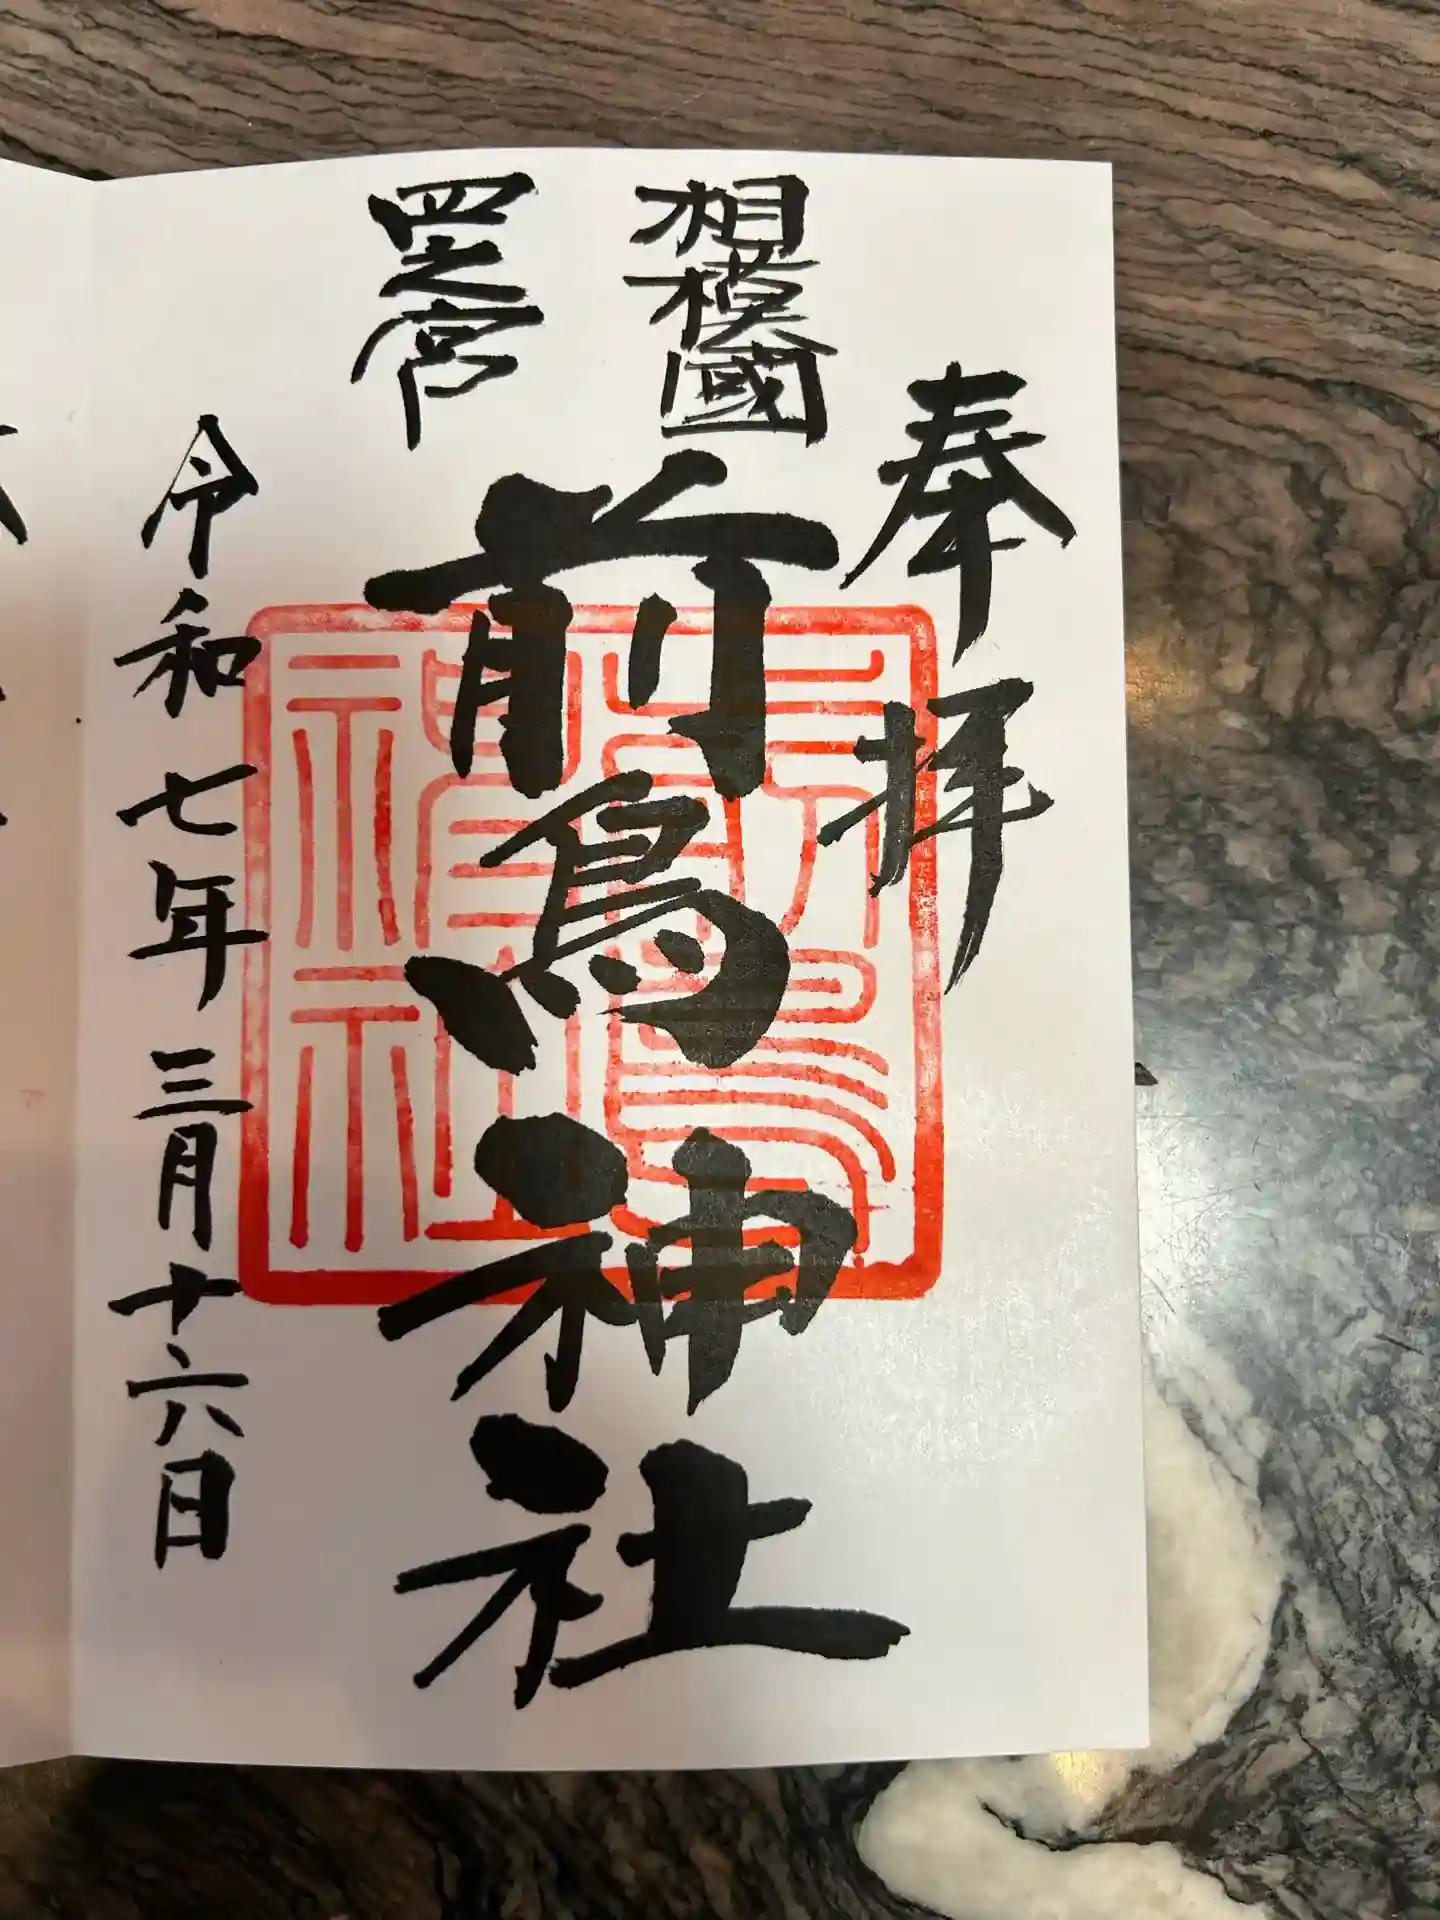 奉拝
相模國
四之宮
前鳥神社
前鳥神社
令和七年三月十六日